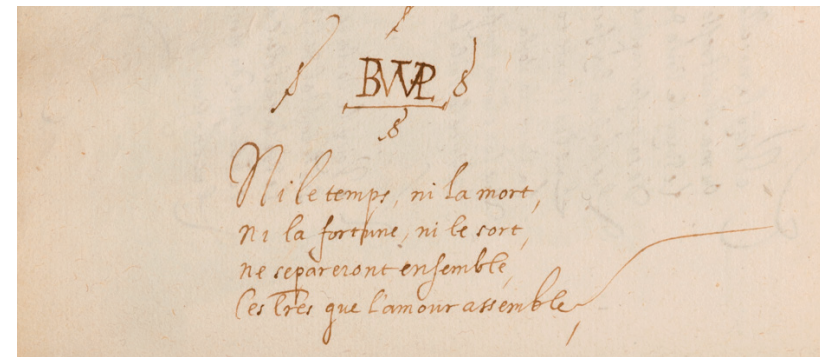 BWPL
Ni le temps, ni la mort,
ni la fortune, ni le sort,
ne separeront ensemble,
Ces Lres que l'amour assemble,